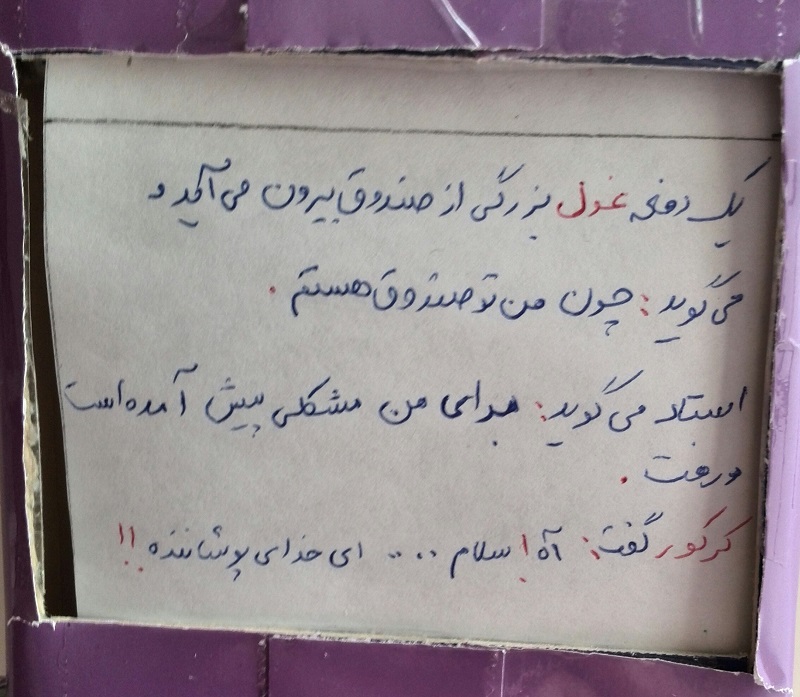 یک دفعه غول بزرگی از صندوق بیرون می‌آید و
می‌گوید: چون من تو صندوق هستم.
استاد می‌گوید: برای من مشکلی پیش آمده است
و رفت.
کرکور گفت: آه! سلام .... ای خدای پوشاننده!!